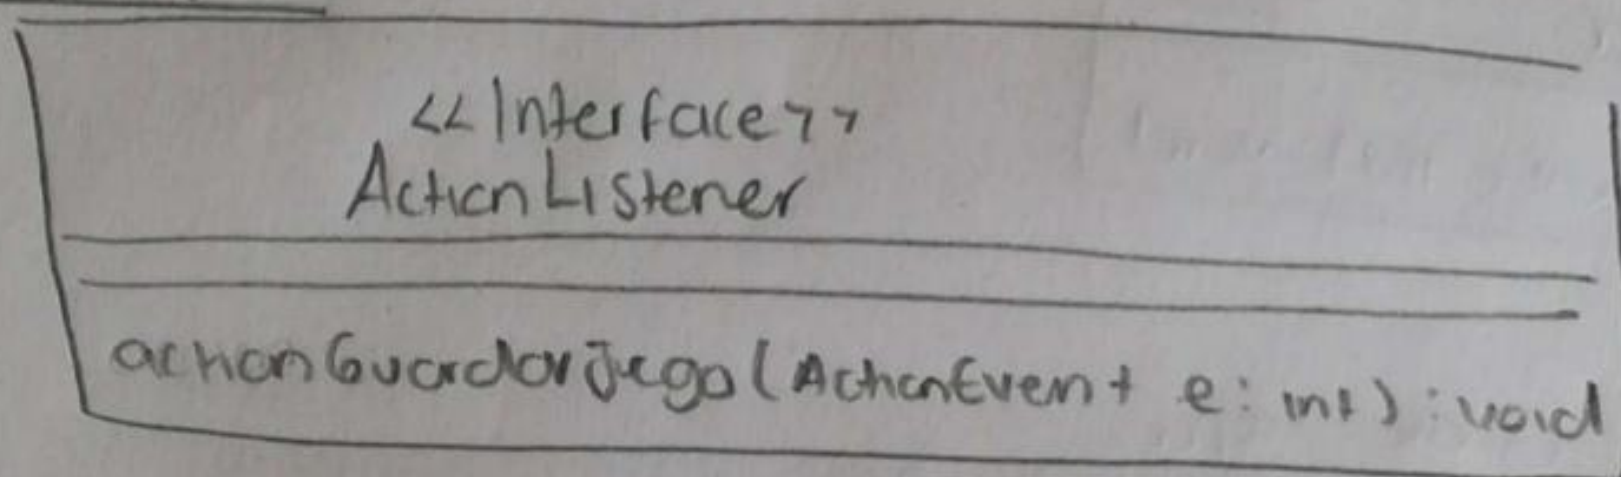 <<Interface>>
ActionListener
actionGuardarJego(ActionEvent e: int): void